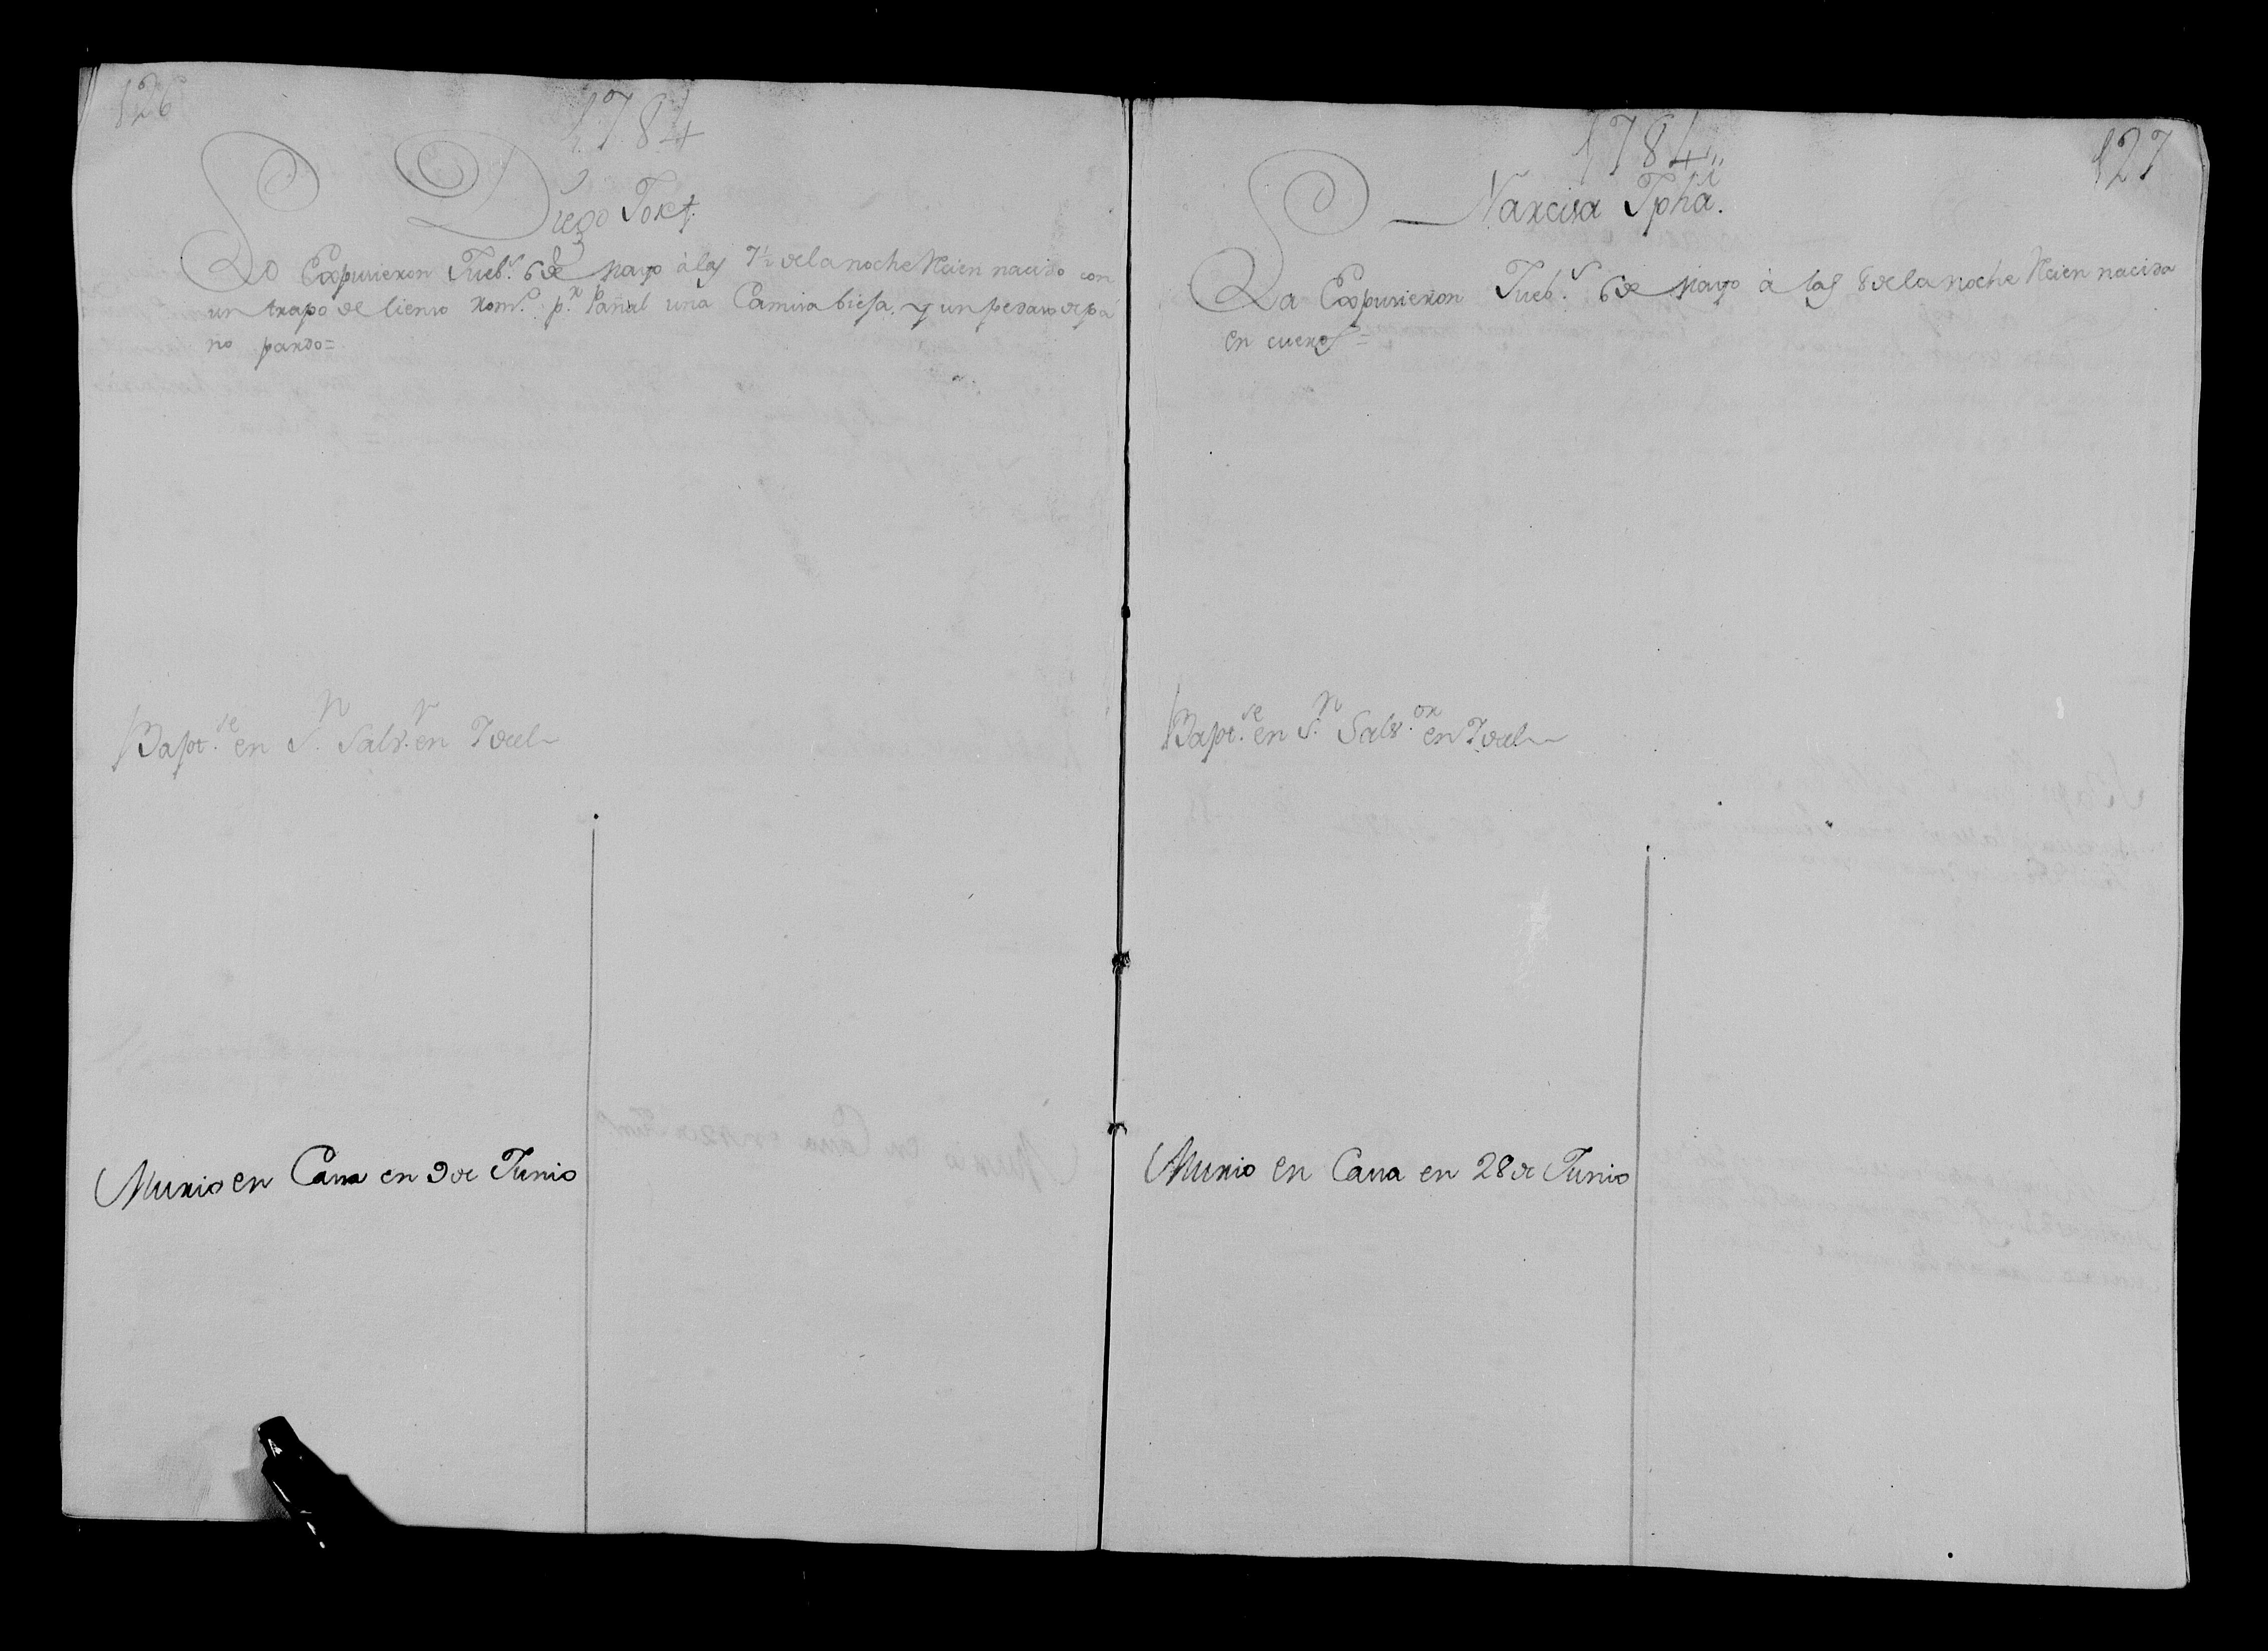 126
1784
Diego Josef
Lo Expusieron Jueb.s 6 de Mayo à las 7½ de la noche Recien nacido con
un trapo de lienzo rom.o p.r Pañal una Camisa biefa, y un pedazo de pa
no pardo=
Bapt.se en S.n Salv.r en 7 del
Murio en Cassa en 9 de Junio
127
1784
Narcisa Jpha.
La Expusieron Jueb.s 6 de Mayo à las 8 de la noche Recien nacida
en cueros=
Bapt.se en S.n Salb.or en 7 del
Murio en Cassa en 28 de Junio